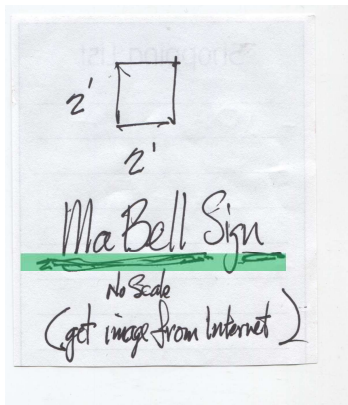 Shopping List
2'
2'
Ma Bell Sign
No Scale
(get image from Internet)